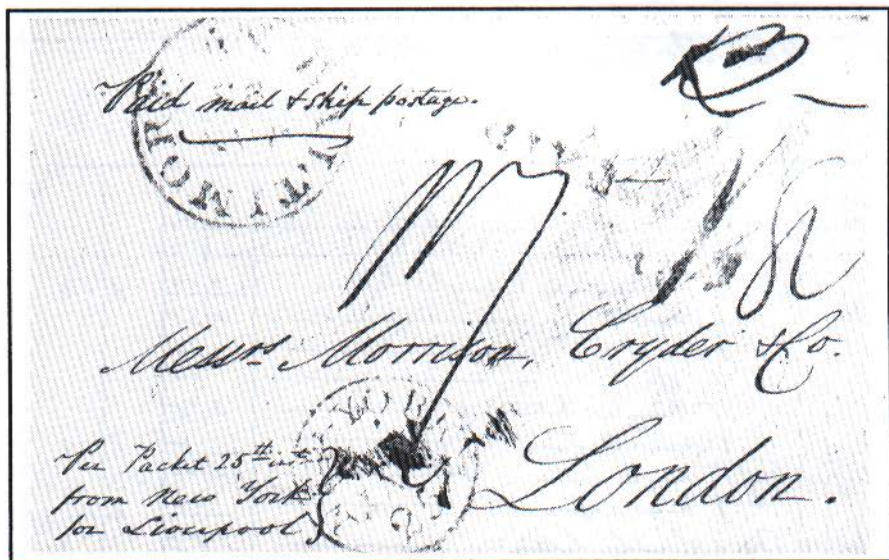 Paid mail & ship postage.
Messrs. Morrison, Cryder & Co.
London.
Per Packet 25th inst
from New York
for Liverpool
TIMOR
YORK